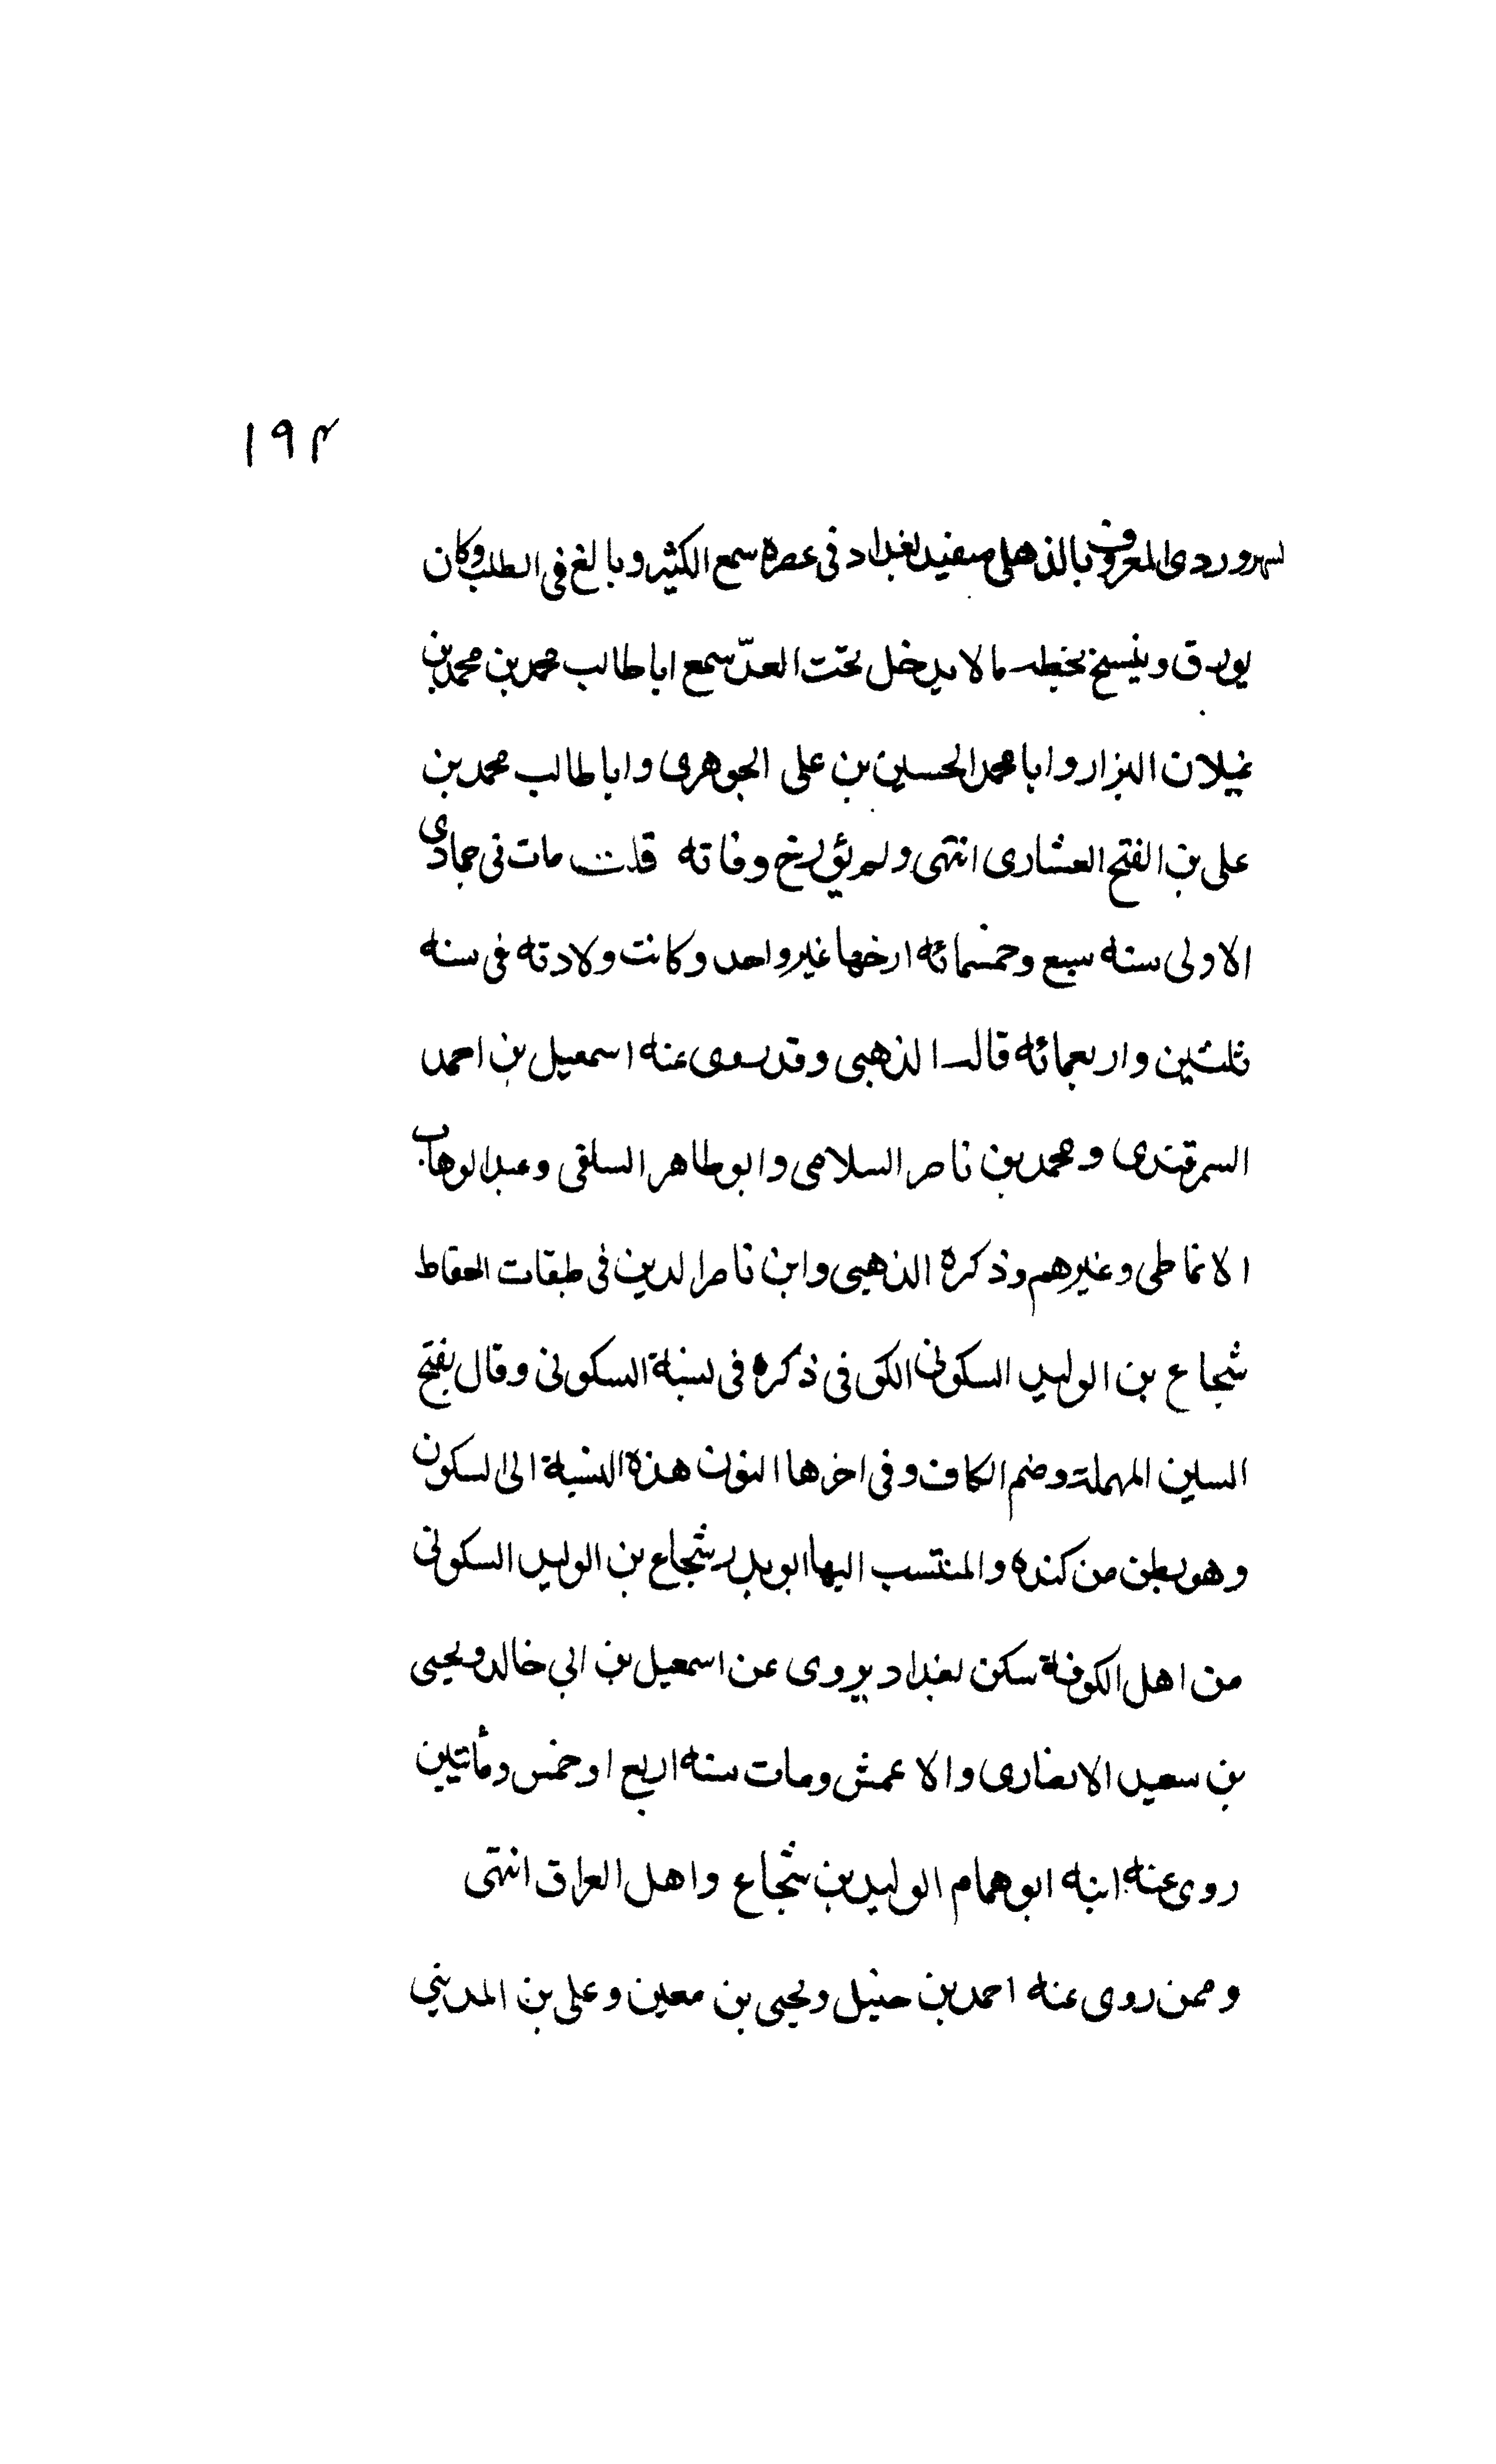 ١٩٣
لسهروردى المعروف بالذهلى مفيد بغداد فى عصره سمع الكثير وبالغ فى الطلب وكان
يورق وينسخ بخطه مالا يدخل تحت العدّ سمع ابا طالب محمد بن محمد بن
غيلان البزار وابا محمد الحسين بن على الجوهرى وابا طالب محمد بن
على بن الفتح العشارى انتهى ولم يؤرخ وفاته قلت مات فى جمادى
الاولى سنه سبع وخمسمائه ارخها غير واحد وكانت ولادته فى سنه
ثلثين واربعمائه قال الذهبى وقد روى عنه اسمعيل بن احمد
السمرقندى ومحمد بن ناصر السلامى وابو طاهر السلفى وعبد الوهاب
الانماطى وغيرهم وذكره الذهبى وابن ناصر الدين فى طبقات الحفاظ
شجاع بن الوليد السكونى الكوفى ذكره فى نسبة السكونى وقال بفتح
السين المهملة وضم الكاف وفى اخرها النون هذه النسبة الى السكون
وهو بطن من كنده والمنتسب اليها ابو بدر شجاع بن الوليد السكونى
من اهل الكوفة سكن بغداد يروى عن اسمعيل بن ابي خالد ويحيى
بن سعيد الانصارى والاعمش ومات سنه اربع او خمس ومأتين
روى عنه ابنه ابو همام الوليد بن شجاع واهل العراق انتهى
وممن روى عنه احمد بن حنبل ويحيى بن معين وعلى بن المديني